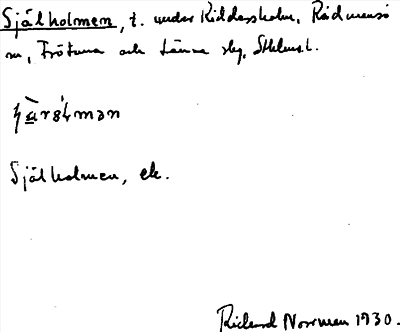 Själholmen, t. under Riddersholm, Rådmansö
sn, Frötuna och Länna skg, Sthlms l.
Själholmen, ek.
Rickard Norrman 1930.